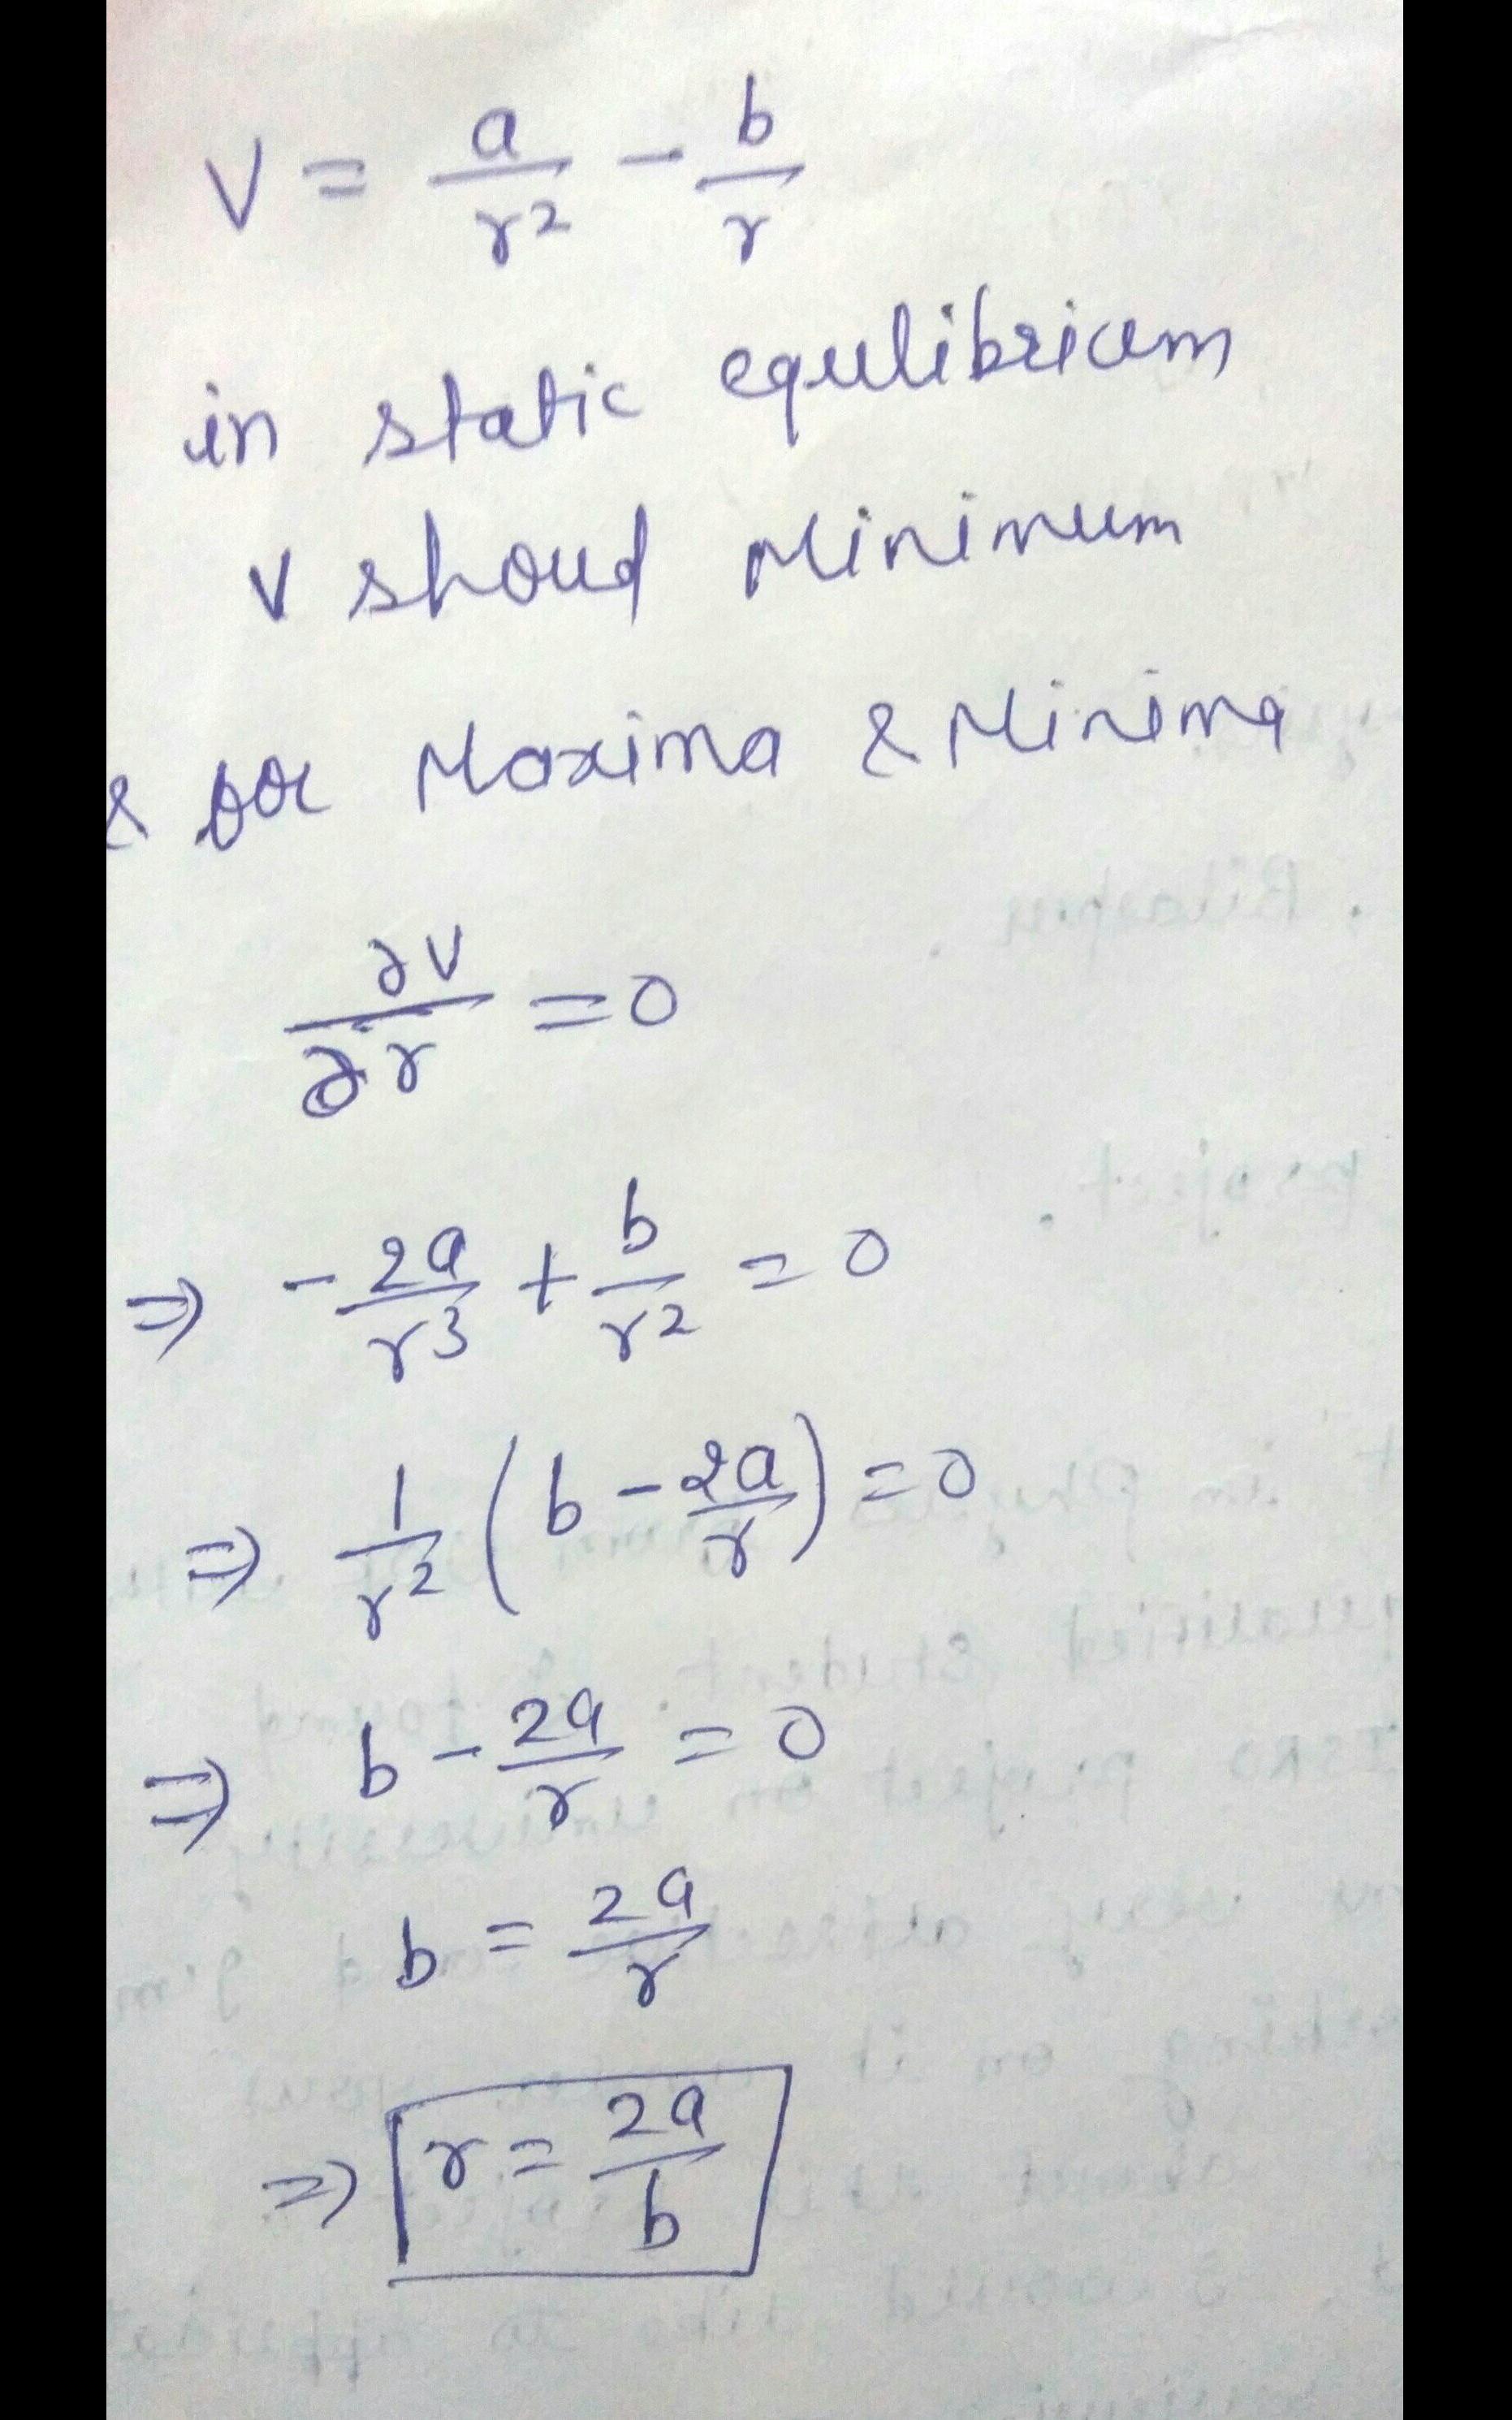 V = a/r² - b/r
in static equlibrium
V shoud Minimum
& for Maxima & Minima
∂V/∂r = 0
⇒ - 2a/r³ + b/r² = 0
⇒ 1/r² (b - 2a/r) = 0
⇒ b - 2a/r = 0
b = 2a/r
⇒ r = 2a/b